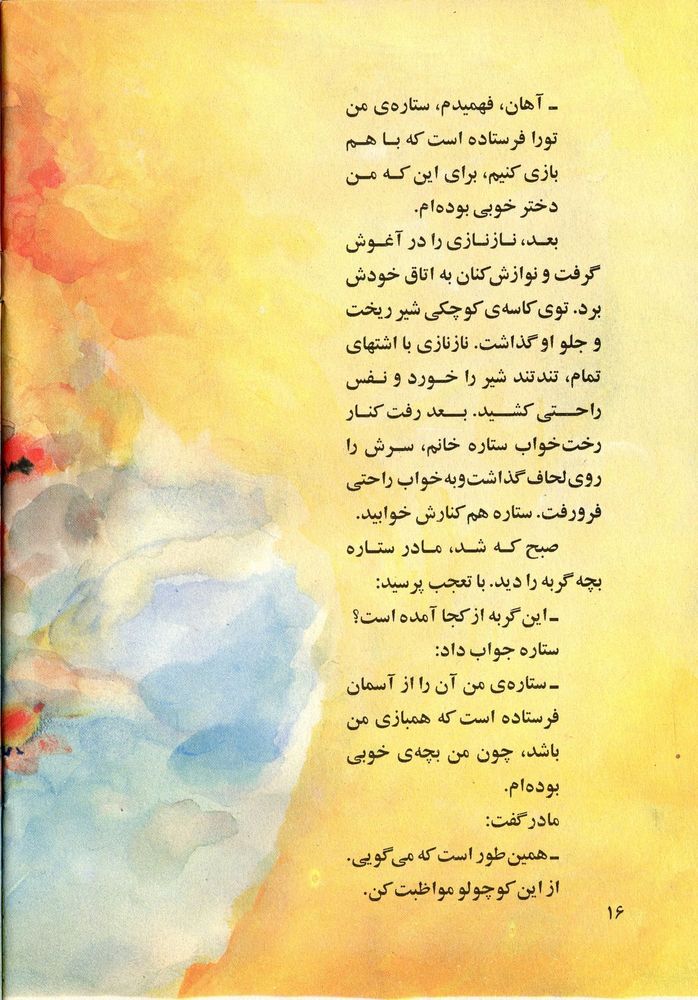 ـ آهان، فهمیدم، ستاره‌ی من
تورا فرستاده است که بـا هـم
بازی کنیم، برای این کـه مـن
دختر خوبی بوده‌ام.
بعـد، نـازنـازی را در آغـوش
گرفت و نوازش‌کنان به اتاق خودش
برد. توی کاسه‌ی کوچکی شیر ریخت
و جلو او گذاشت. نازنازی با اشتهای
تمام، تندتند شیر را خـورد و نـفس
راحـتـی کشـیـد. بـعـد رفت کنـار
رخت‌خواب ستاره خانم، سـرش را
روی لحاف گذاشت و به خواب راحتی
فرورفت. ستاره هم کنارش خوابید.
صبح کـه شـد، مـادر ستـاره
بچه گربه را دید. با تعجب پرسید:
ـ این گربه از کجا آمده است؟
ستاره جواب داد:
ـ ستاره‌ی من آن را از آسمان
فرستاده است که همبازی من
باشد، چون من بچه‌ی خوبی
بوده‌ام.
مادر گفت:
ـ همین طور است که می‌گویی.
از این کوچولو مواظبت کن.
۱۶